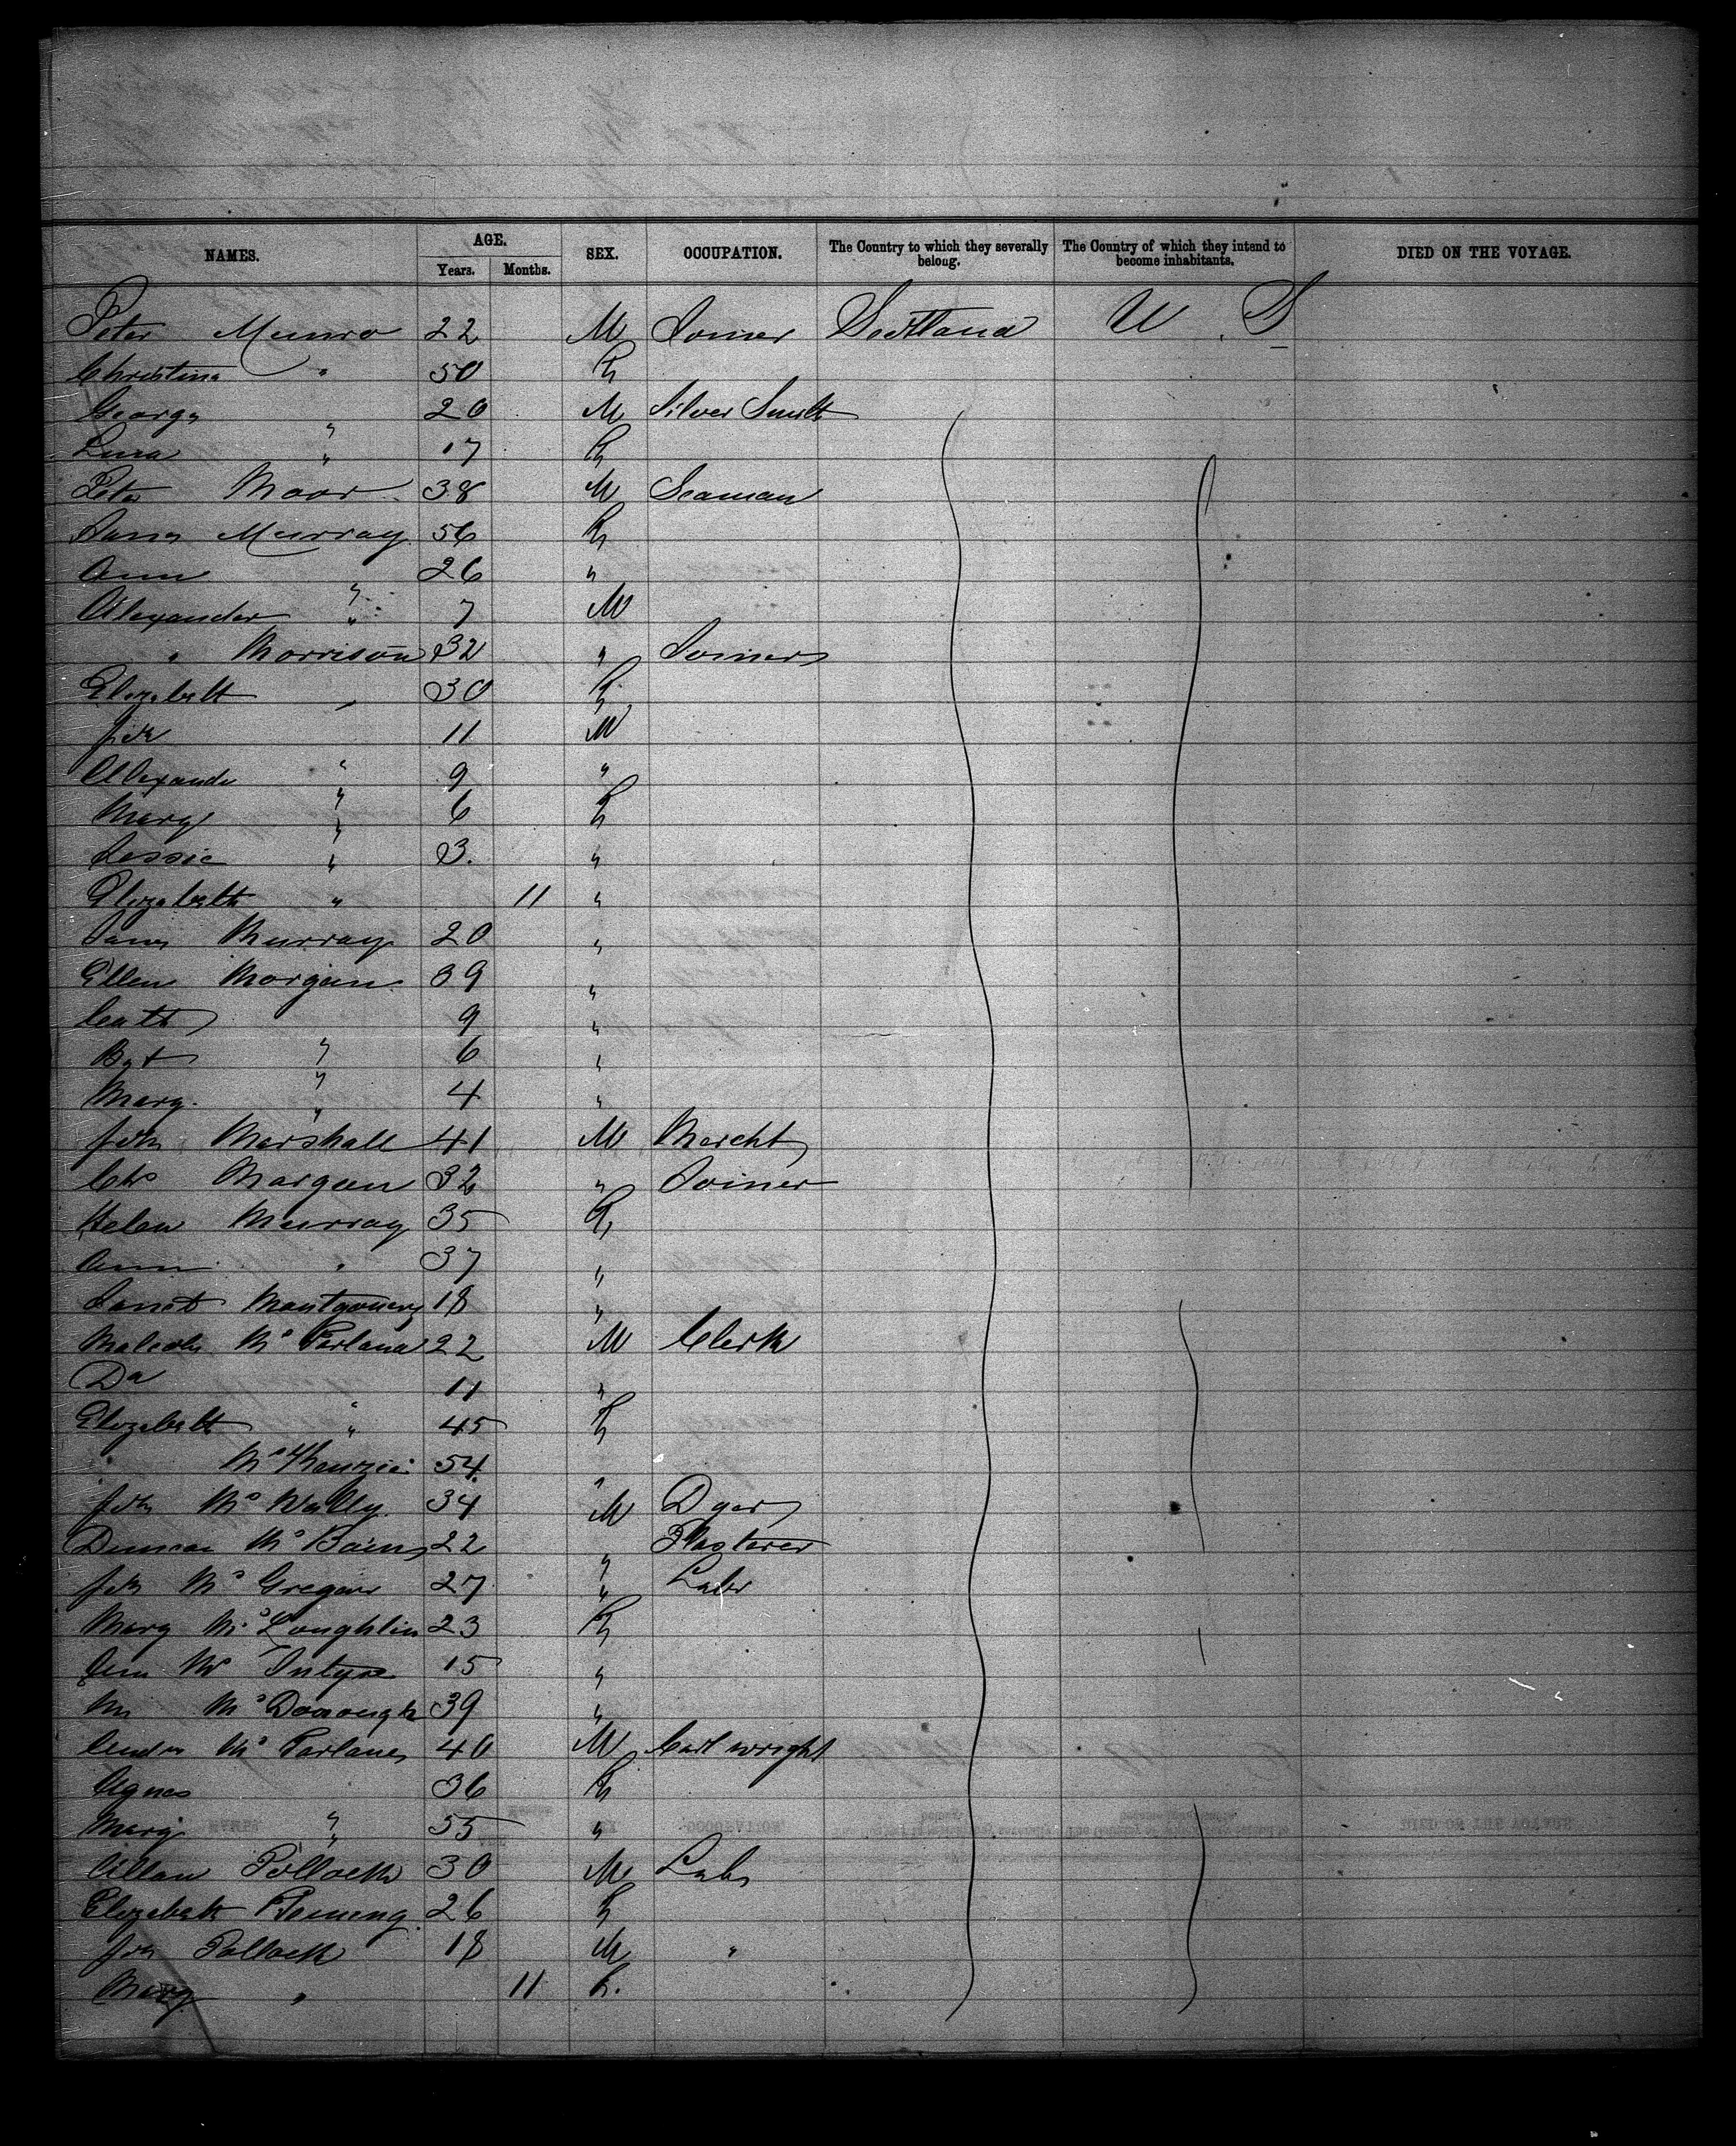 NAMES. AGE. Years. Months. SEX. OCCUPATION. The Country to which they severally belong. The Country of which they intend to become inhabitants. DIED ON THE VOYAGE.
Peter Munro 22 M Joiner Scotland U. S
Christina " 50 F
George " 20 M Silver Smith
Lina " 17 F
Peter Moor 38 M Seaman
Jane Murray 56 F
Ann " 26 "
Alexander " 7 M
" Morrison 32 " Joiner
Elizabeth " 30 F
Jno 11 M
Alexander " 9 "
Mary " 6 F
Jessie " 3 "
Elizabeth " 11 "
Jane Murray 20 "
Ellen Morgan 39 "
Cath 9 "
Bgt " 6 "
Marg. " 4 "
John Marshall 41 M Mercht
Chs Morgan 32 " Joiner
Helen Murray 35 F
Ann " 37 "
Janet Montgomery 18 "
Malcolm Mc Farland 22 M Clerk
Da 11 "
Elizabeth " 45 F
" Mc Kenzie 54 "
John Mc Nally 34 M Dyer
Duncan Mc Bain 22 " Plasterer
John Mc Gregor 27 " Labr
Mary Mc Loughlin 23 F
Mc Intyre 15 "
Mc Donough 39 "
Andw Mc Farlane 40 M Cartwright
Agnes 36 F
Mary " 55 "
Allan Pollock 30 M Labr
Elizabeth 26 F
Jno Pollock 18 M "
Mary " 11 F.